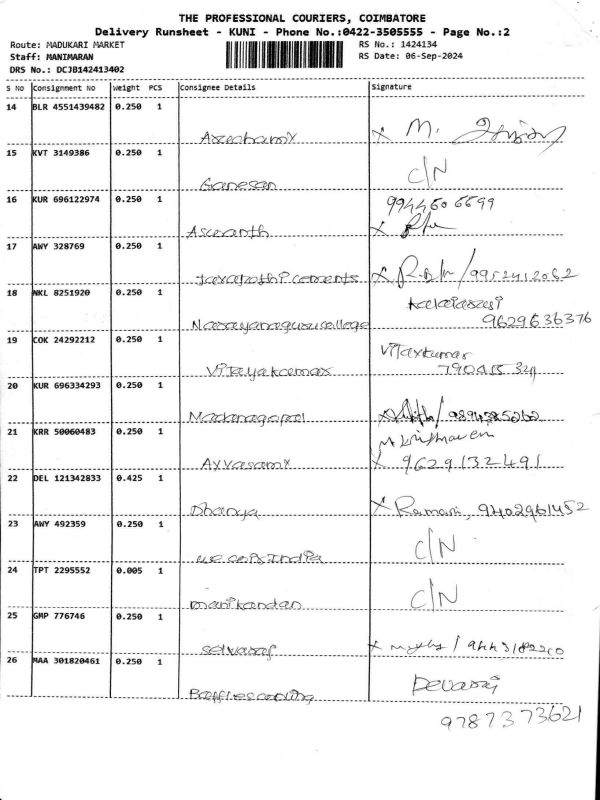 THE PROFESSIONAL COURIERS, COIMBATORE
Delivery Runsheet - KUNI - Phone No.:0422-3505555 - Page No.:2
Route: MADUKARI MARKET RS No.: 1424134
Staff: MANIMARAN RS Date: 06-Sep-2024
DRS No.: DCJB142413402
S No Consignment No Weight PCS Consignee Details Signature
14 BLR 4551439482 0.250 1
M.
15 KVT 3149386 0.250 1
Ganesan C/N
16 KUR 696122974 0.250 1
9944606699
Aswanth
17 AWY 328769 0.250 1
9952412062
18 NKL 8251920 0.250 1
Narayanagurucollege 9629636376
19 COK 24292212 0.250 1
Vijayakumar
20 KUR 696334293 0.250 1
Madanagopal
21 KRR 50060483 0.250 1
Ayyasamy 9629132491
22 DEL 121342833 0.425 1
Dhanya Ramani, 9402961452
23 AWY 492359 0.250 1
C/N
24 TPT 2295552 0.005 1
manikandan C/N
25 GMP 776746 0.250 1
selvaraj
26 MAA 301820461 0.250 1
Devaraj
9787373621